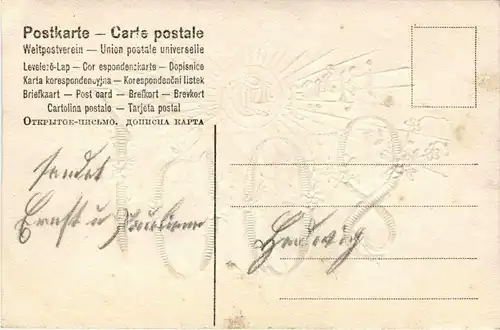 Postkarte — Carte postale
Weltpostverein — Union postale universelle
Levelező-Lap — Correspondenzkarte — Dopisnice
Karta korespondencyjna — Korespondenční lístek
Briefkaart — Post card — Brefkort — Brevkort
Cartolina postale — Tarjeta postal
ОТКРЫТОЕ-ПИСЬМО. ДОПИСНА КАРТА
sendet
Ernst u Pauline
Hedwig
1908